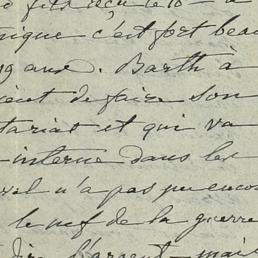 nique c'est fort beau
19 ans. Barth à
vient de faire son
tariat et qui va
interne dans les
n'a pas pu enco
le nerf de la guerre
dire l'argent mais